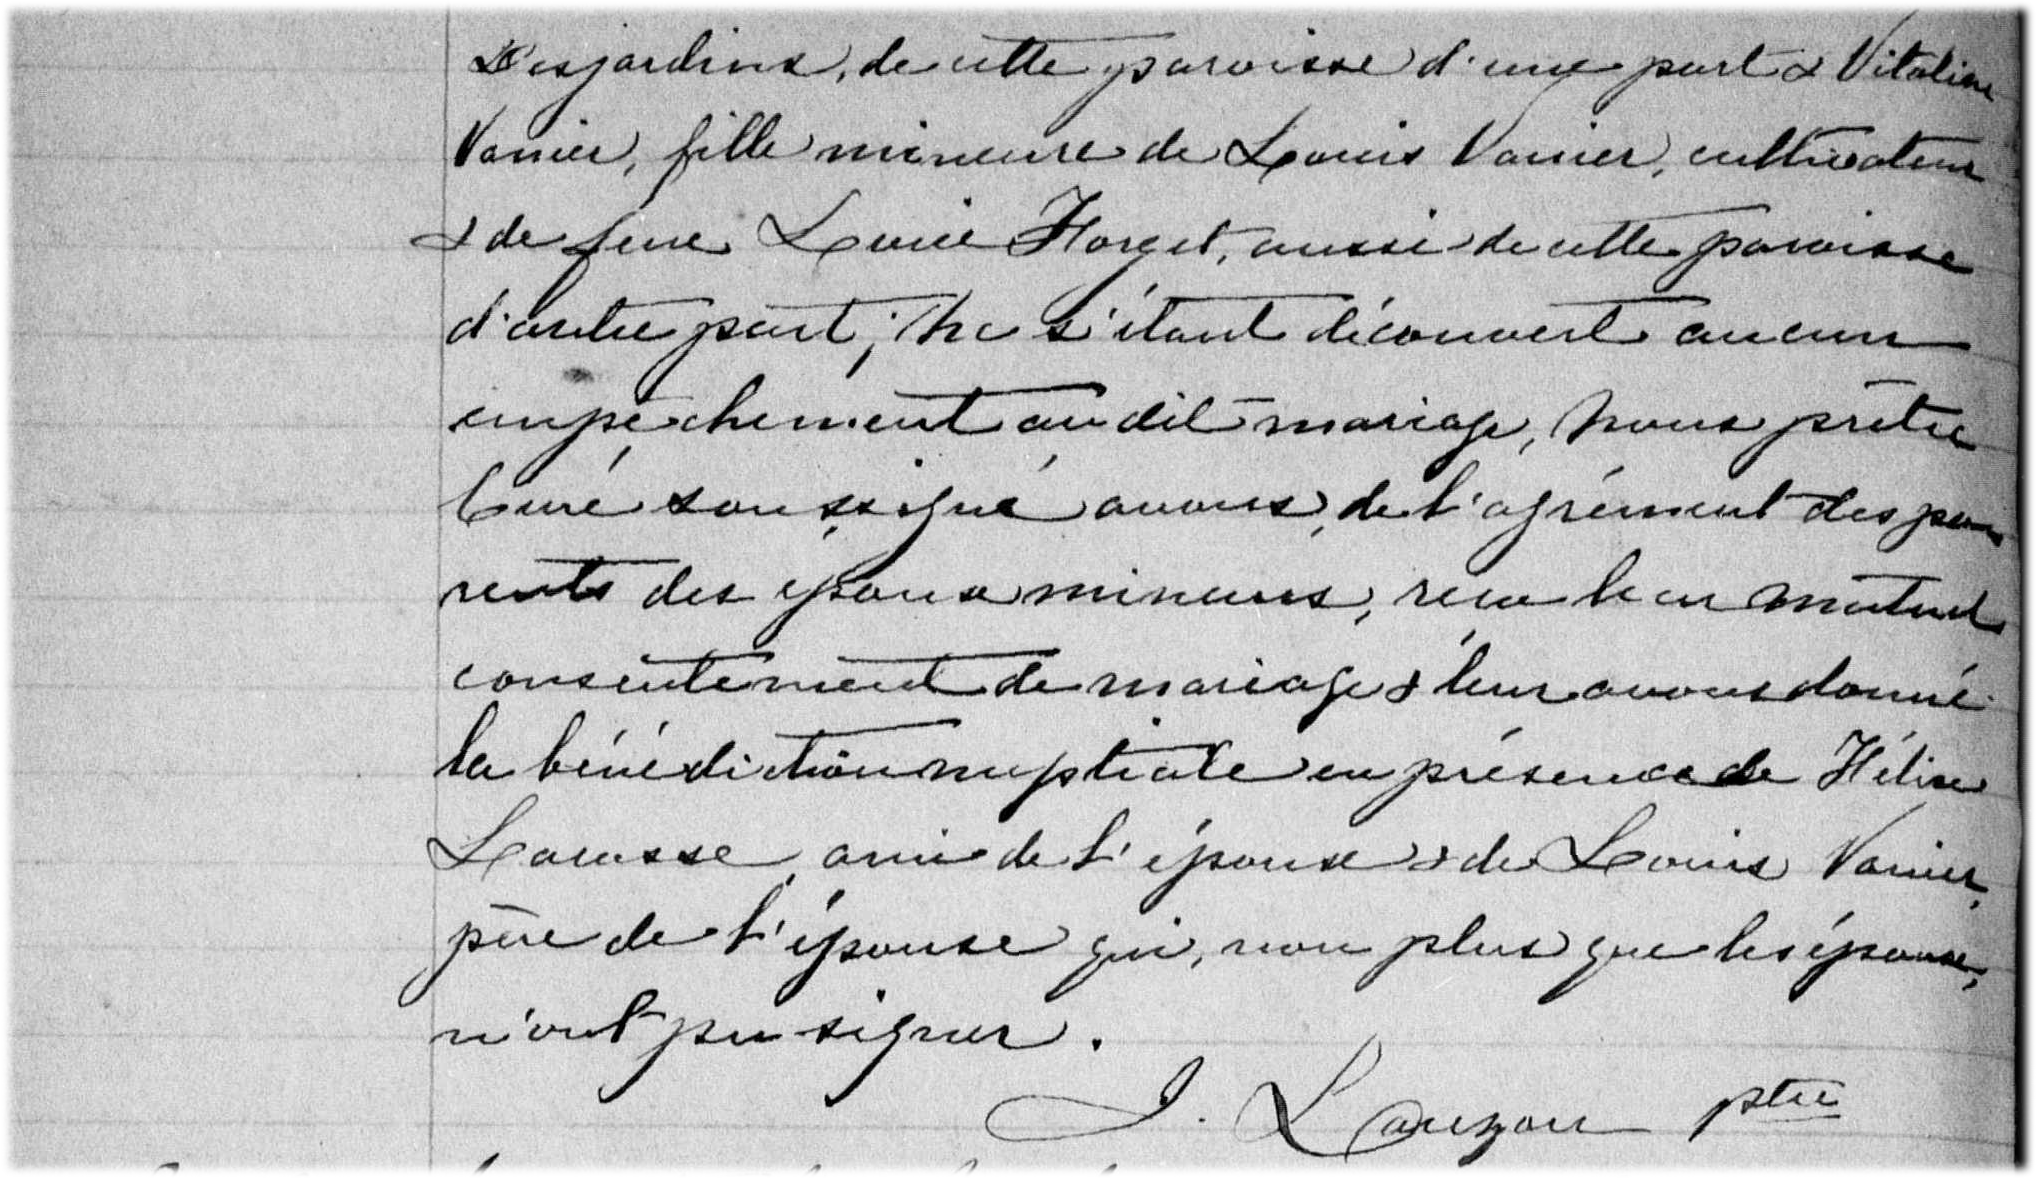 Desjardins, de cette paroisse d'une part & Vitaline
Vanier, fille mineure de Louis Vanier, cultivateur
& de feue Louise Forget, aussi de cette paroisse
d'autre part; ne s'étant découvert aucun
empêchement au dit mariage, nous prêtre
Curé soussigné avons, de l'agrément des pa
rents des époux mineurs, recu leur mutuel
consentement de mariage & leur avons donné
la bénédiction nuptiale en présence de
Lacasse, ami de l'épouse & de Louis Vanier,
père de l'épouse qui, non plus que les époux,
n'ont pu signer.
J. Lauzon ptre